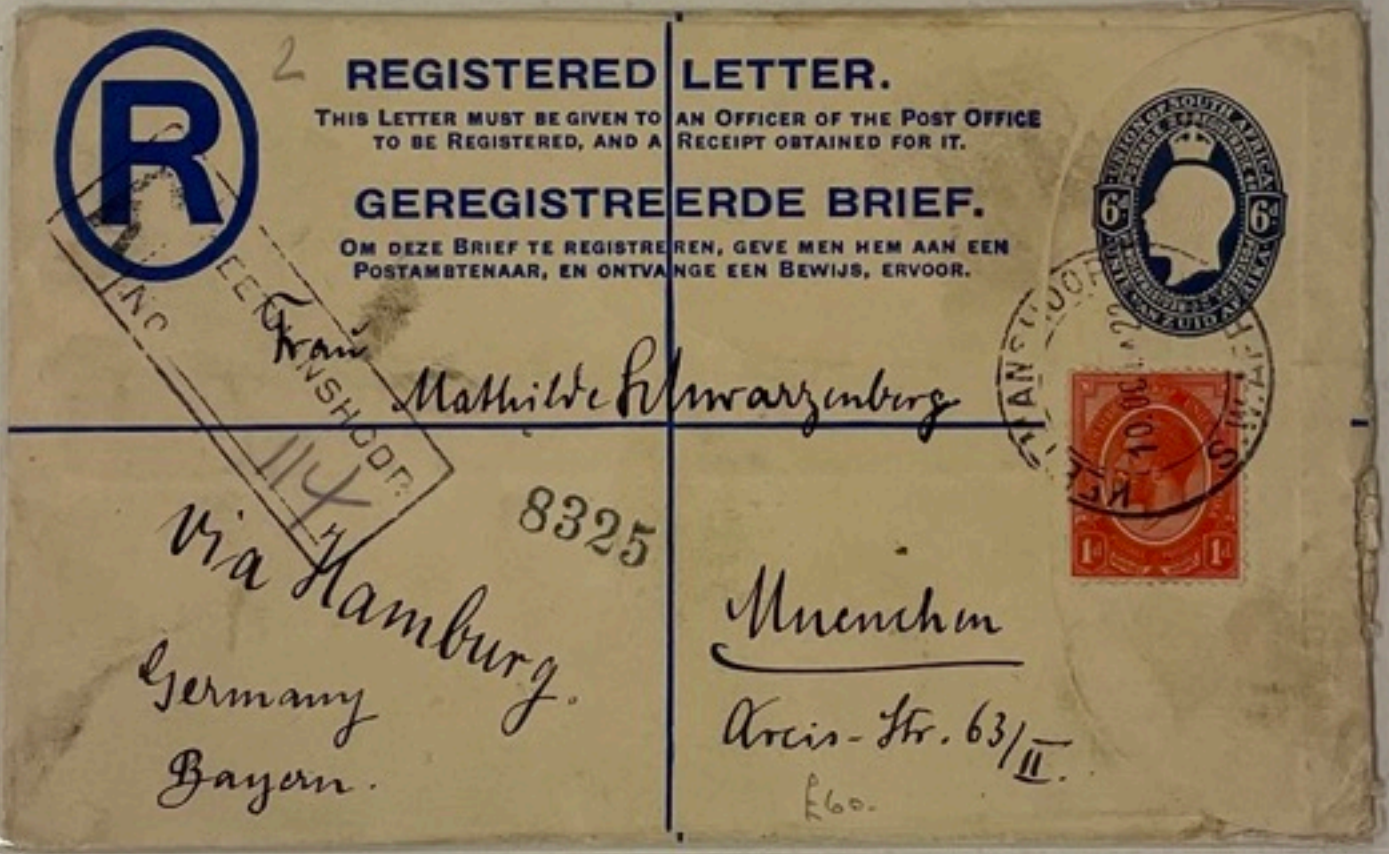 R
2
REGISTERED LETTER.
THIS LETTER MUST BE GIVEN TO AN OFFICER OF THE POST OFFICE
TO BE REGISTERED, AND A RECEIPT OBTAINED FOR IT.
GEREGISTREERDE BRIEF.
OM DEZE BRIEF TE REGISTREREN, GEVE MEN HEM AAN EEN
POSTAMBTENAAR, EN ONTVANGE EEN BEWIJS, ERVOOR.
UNION OF SOUTH AFRICA
6d 6d
UNIE VAN ZUID AFRIKA
NO
114
Frau
Mathilde Schwarzenberg
8325
via Hamburg.
Germany
Bayern.
Muenchen
Arcis-Str. 63/II.
£60.
10. OC
S.W.AFR
1d 1d